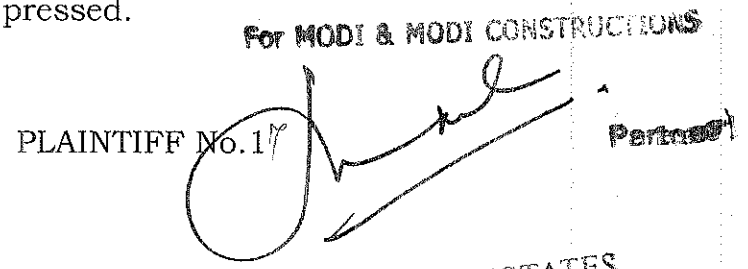 pressed.
For MODI & MODI CONSTRUCTIONS
PLAINTIFF No.17
Partner
STATES